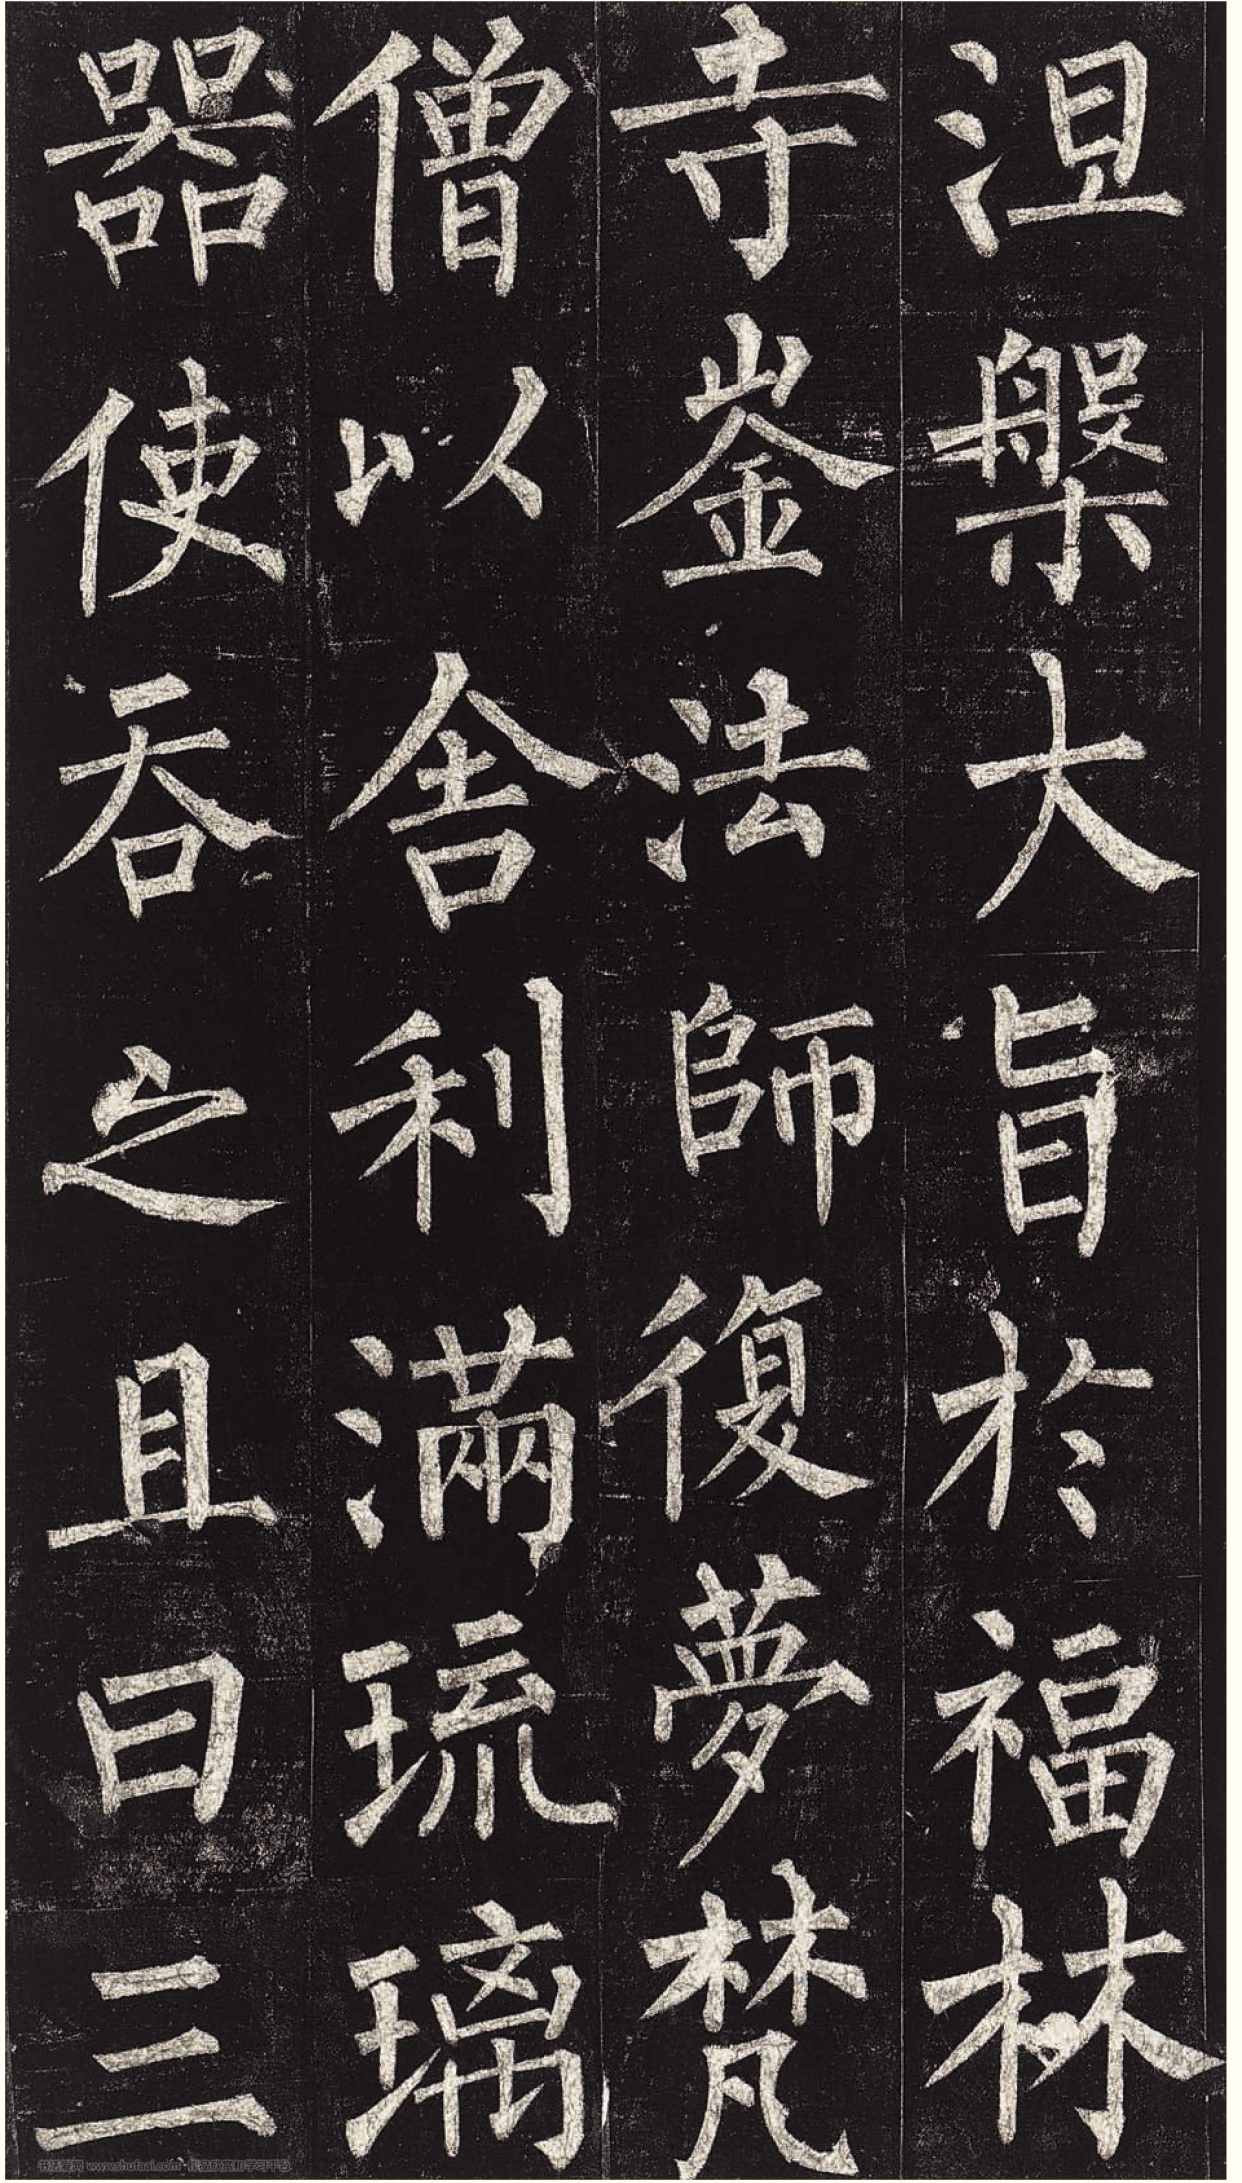 涅槃大旨於福林
寺崟法師復夢梵
僧以舍利滿琉璃
器使吞之且曰三
书法爱网 www.shufaai.com 作品欣赏和学习平台